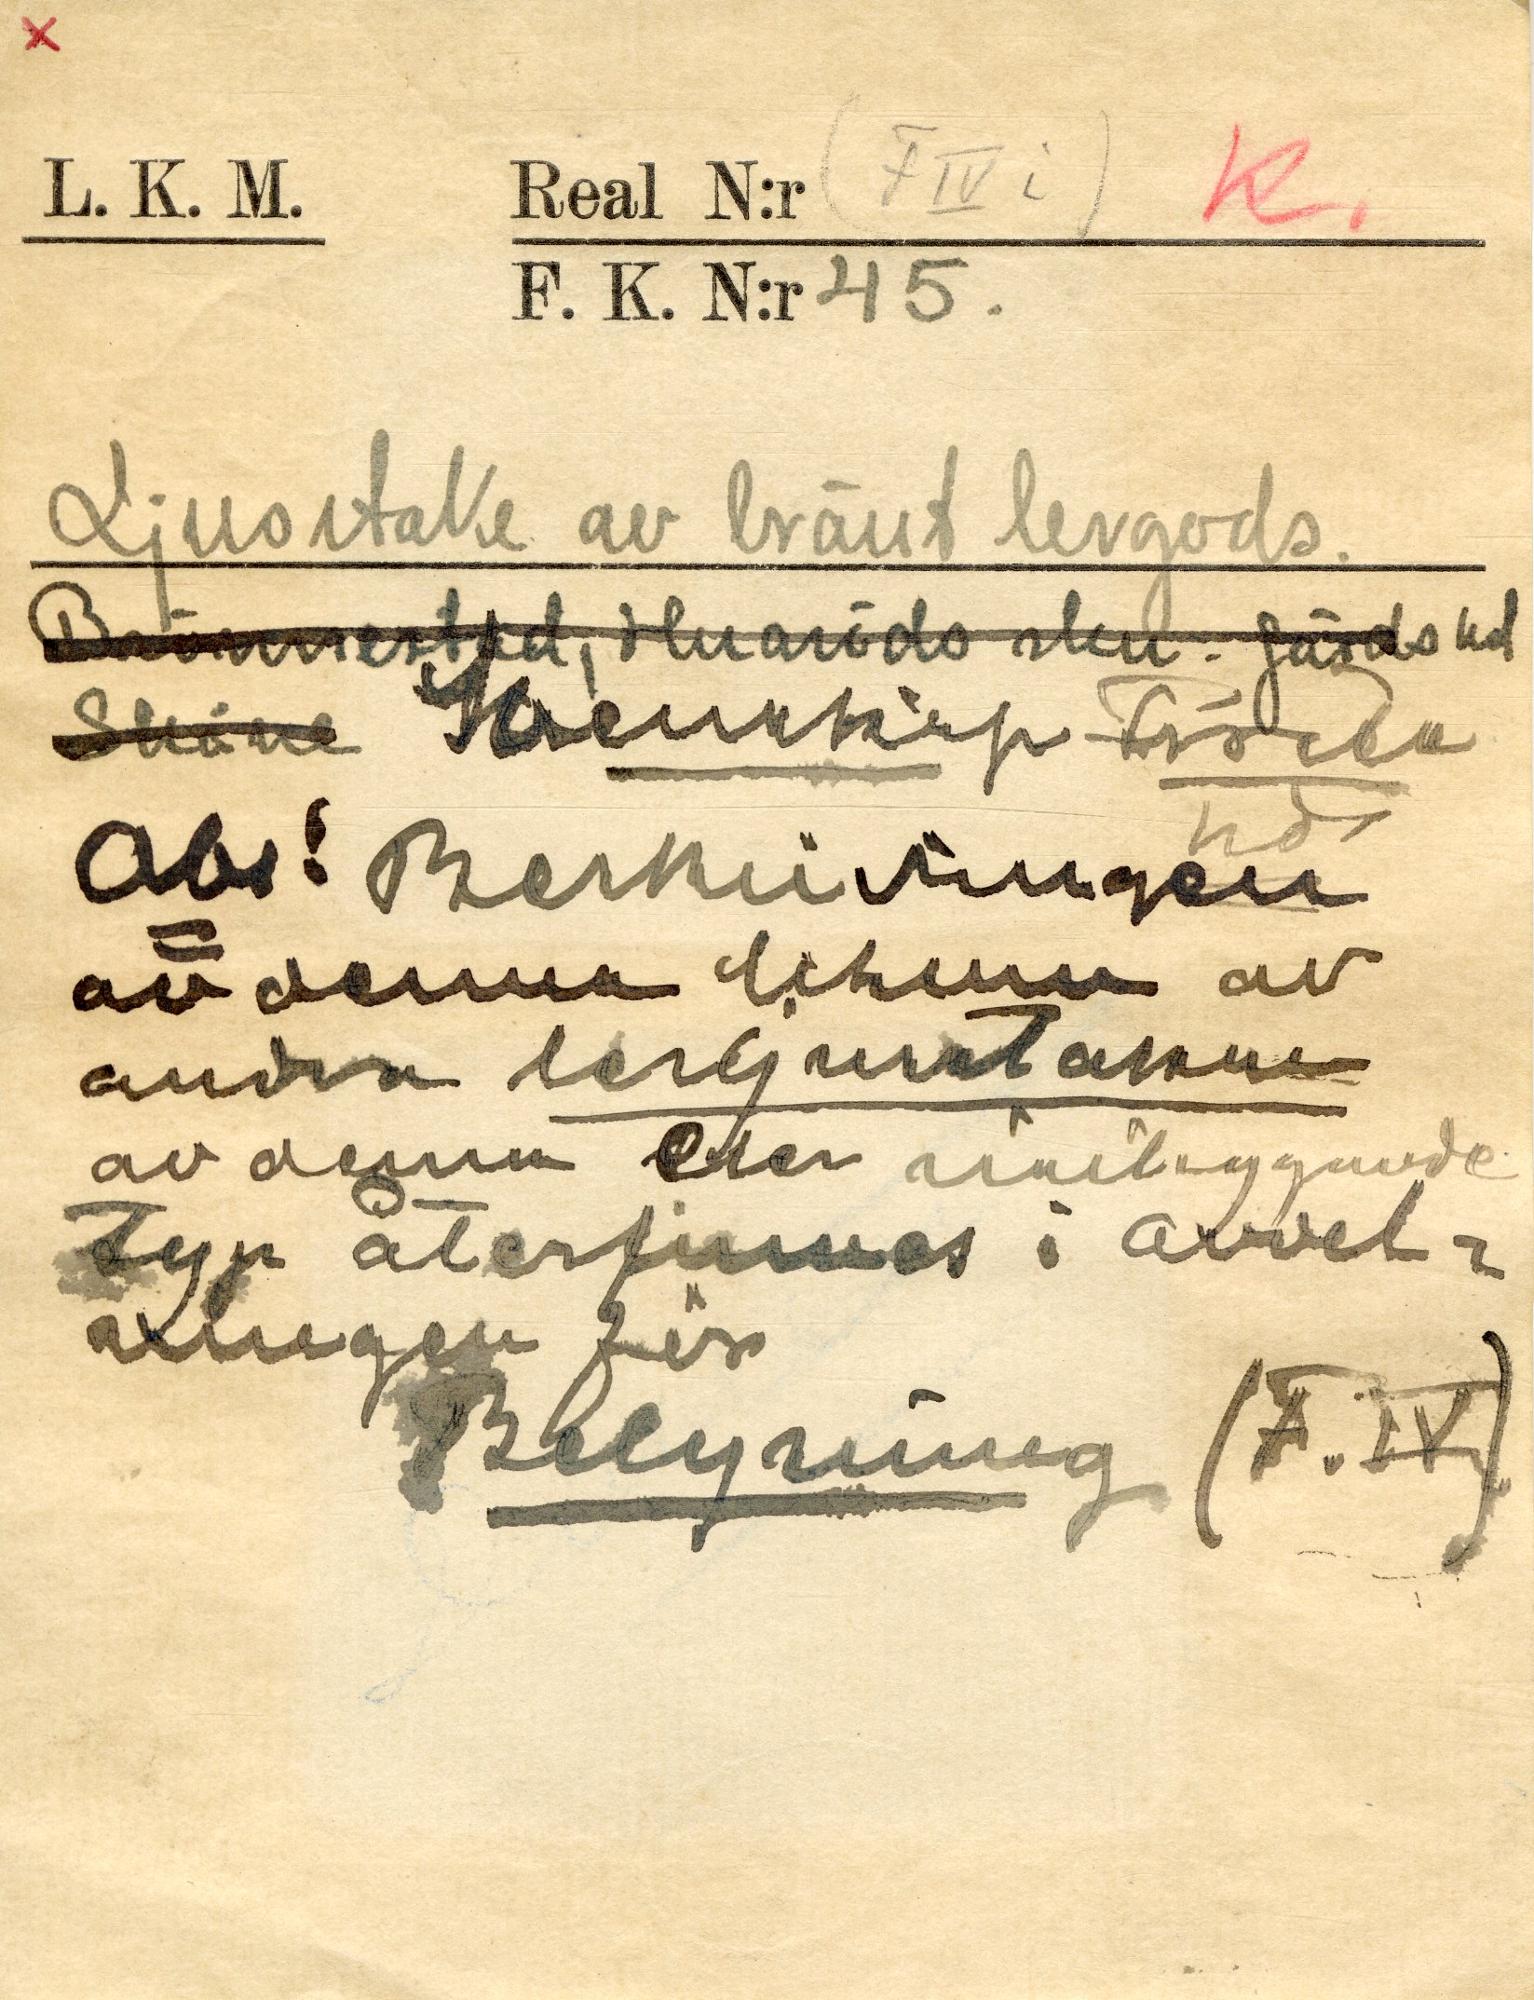 L. K. M. Real N:r (F IV i) K.
F. K. N:r 45.
Ljusstake av bränt lergods.
Brönnestad, skn. Gärds hd
Skåne Stenskirp Frosta
hd
Obs! Beskrivningen
av denna liksom av
andra lerljusstakar
av denna eller närliggande
Typ återfinnes i avdel-
ningen för
Belysning (F. IV)